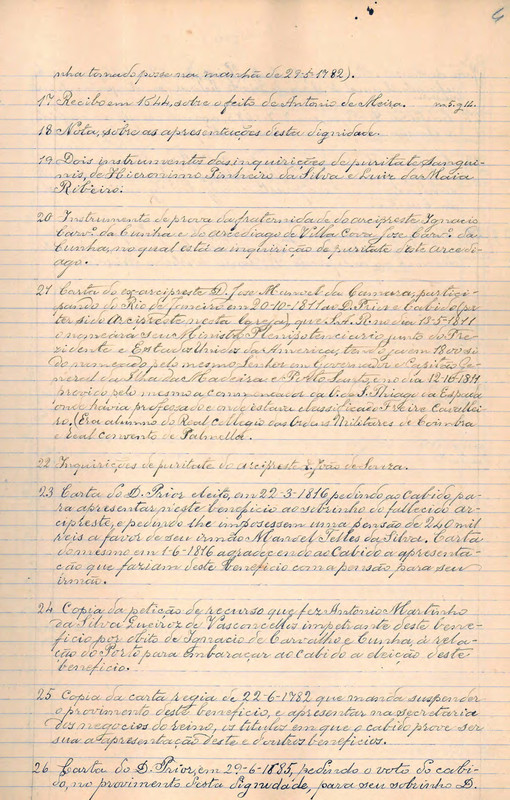 4
nha tomado posse na manhã de 29-5-1782).
17 Recibo em 1644, sobre o feito de Antonio de Meira. m5.g14.
18 Nota, sobre as apresentações desta dignidade.
19 Dois instrumentos das inquirições de puritate sangui-
nis, de Hieronimo Pinheiro da Silva e Luiz da Maia
Ribeiro.
20 Instrumento de prova da fraternidade do arcipreste Ignacio
Carv.º da Cunha e do arcediago de Villa Cova, Jose Carv.º da
Cunha, no qual está a inquirição de puritate deste arcedi-
ago.
21 Carta do ex-arcipreste D. Jose Manoel da Camara, partici-
pando do Rio de Janeiro em 20-10-1811 ao D. Prior e Cabido
ter sido Arcipreste nesta que S.A.R. no dia 13-5-1811
o nomeára seu Ministro Plenipotenciario junto do Pre-
zidente e Estados Unidos da America, tendo ja em 1800 si-
do nomeado pelo mesmo Senhor em Governador e Capitão Ge-
neral da Ilha da Madeira e Porto Santo, e no dia 12-10-1811
provido pelo mesmo a commendador da de S. Thiago da Espada
onde havia professado e onde estava classificado Freire Cavallei-
ro. (Era alumno do Real collegio das Ordens Militares de Coimbra
e Real Convento de Palmella.
22 Inquirições de puritate do arcipreste João de Souza.
23 Carta do D. Prior eleito, em 22-3-1816 pedindo ao Cabido, pa-
ra apresentar neste beneficio ao sobrinho do fallecido ar-
cipreste, e pedindo lhe impozessem uma pensão de 240 mil
reis a favor de seu irmão Manoel Telles da Silva. Carta
do mesmo em 1-6-1816 agradecendo ao Cabido a apresenta-
ção que faziam deste beneficio com a pensão para seu
irmão.
24 Copia da petição de recurso que fez Antonio Martinho
da Silva Queiroz de Vasconcellos impetrante deste bene-
ficio, por obito de Ignacio de Carvalho e Cunha, á rela-
ção do Porto para embaraçar ao Cabido a eleição deste
beneficio.
25 Copia da carta regia de 22-6-1782 que manda suspender
o provimento deste beneficio, e apresentar na secretaria
dos negocios do reino, os titulos em que o cabido prove ser
sua a apresentação deste e doutros beneficios.
26 Carta do D. Prior, em 29-6-1885, pedindo o voto do cabi-
do, no provimento desta dignidade, para seu sobrinho D.